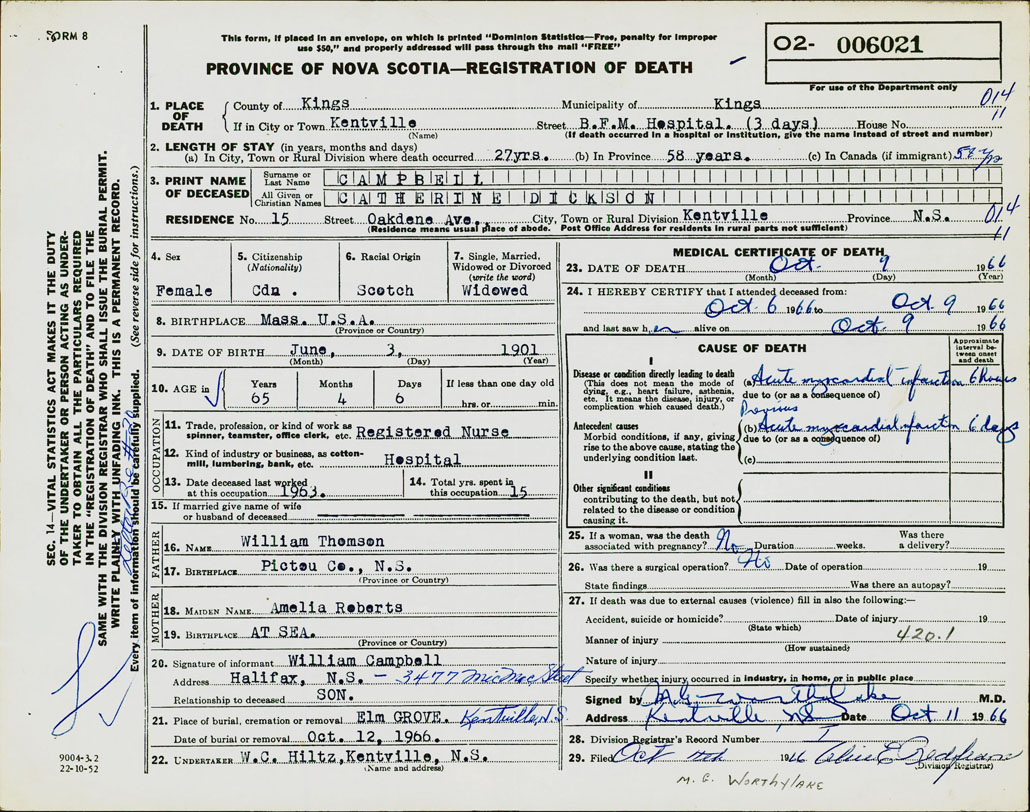 FORM 8
This form, if placed in an envelope, on which is printed "Dominion Statistics—Free, penalty for improper
use $50," and properly addressed will pass through the mail "FREE"
PROVINCE OF NOVA SCOTIA—REGISTRATION OF DEATH
02- 006021
For use of the Department only
014
11
1. PLACE OF DEATH
County of Kings Municipality of Kings
If in City or Town Kentville Street B.F.M. Hospital. (3 days) House No.
(Name) (If death occurred in a hospital or institution, give the name instead of street and number)
2. LENGTH OF STAY (in years, months and days)
(a) In City, Town or Rural Division where death occurred 27yrs. (b) In Province 58 years. (c) In Canada (if immigrant) 58 yrs
3. PRINT NAME OF DECEASED
Surname or Last Name CAMPBELL
All Given or Christian Names CATHERINE DICKSON
RESIDENCE No. 15 Street Oakdene Ave., City, Town or Rural Division Kentville Province N.S.
014
11
(Residence means usual place of abode. Post Office Address for residents in rural parts not sufficient)
4. Sex
Female
5. Citizenship (Nationality)
Cdn.
6. Racial Origin
Scotch
7. Single, Married, Widowed or Divorced (write the word)
Widowed
8. BIRTHPLACE Mass. U.S.A.
(Province or Country)
9. DATE OF BIRTH June, 3, 1901
(Month) (Day) (Year)
10. AGE in
Years Months Days If less than one day old
65 4 6 hrs. or min.
OCCUPATION
11. Trade, profession, or kind of work as
spinner, teamster, office clerk, etc. Registered Nurse
12. Kind of industry or business, as cotton-
mill, lumbering, bank, etc. Hospital
13. Date deceased last worked
at this occupation 1963.
14. Total yrs. spent in
this occupation 15
15. If married give name of wife
or husband of deceased
FATHER
16. NAME William Thomson
17. BIRTHPLACE Pictou Co., N.S.
(Province or Country)
MOTHER
18. MAIDEN NAME Amelia Roberts
19. BIRTHPLACE AT SEA.
(Province or Country)
20. Signature of informant William Campbell
Address Halifax, N.S. - 3477 MicMac Street
Relationship to deceased SON.
21. Place of burial, cremation or removal Elm GROVE. Kentville, N.S.
Date of burial or removal Oct. 12, 1966.
22. UNDERTAKER W.C. Hiltz, Kentville, N.S.
(Name and address)
MEDICAL CERTIFICATE OF DEATH
23. DATE OF DEATH Oct. 9 1966
(Month) (Day) (Year)
24. I HEREBY CERTIFY that I attended deceased from:
Oct 6 1966 to Oct. 9 1966
and last saw h er alive on Oct. 9 1966
CAUSE OF DEATH
Approximate interval between onset and death
I
Disease or condition directly leading to death
(This does not mean the mode of
dying, e.g., heart failure, asthenia,
etc. It means the disease, injury, or
complication which caused death.)
(a) Acute myocardial infarction 6 hours
due to (or as a consequence of)
Previous
Antecedent causes
Morbid conditions, if any, giving
rise to the above cause, stating the
underlying condition last.
(b) Acute myocardial infarction 6 days
due to (or as a consequence of)
(c)
II
Other significant conditions
contributing to the death, but not
related to the disease or condition
causing it.
25. If a woman, was the death Was there
associated with pregnancy? No Duration weeks. a delivery?
26. Was there a surgical operation? No Date of operation 19
State findings Was there an autopsy?
27. If death was due to external causes (violence) fill in also the following:—
Accident, suicide or homicide? Date of injury 19
(State which)
Manner of injury 420.1
(How sustained)
Nature of injury
Specify whether injury occurred in industry, in home, or in public place
Signed by M.G. Worthylake M.D.
Address Kentville NS Date Oct 11 1966
28. Division Registrar's Record Number
29. Filed Oct 19
(Division Registrar)
M. G. WORTHYLAKE
SEC. 14—VITAL STATISTICS ACT MAKES IT THE DUTY
OF THE UNDERTAKER OR PERSON ACTING AS UNDER-
TAKER TO OBTAIN ALL THE PARTICULARS REQUIRED
IN THE "REGISTRATION OF DEATH" AND TO FILE THE
SAME WITH THE DIVISION REGISTRAR WHO SHALL ISSUE THE BURIAL PERMIT.
WRITE PLAINLY WITH UNFADING INK. THIS IS A PERMANENT RECORD.
Every item of information should be carefully supplied. (See reverse side for instructions.)
9004-3.2
22-10-52